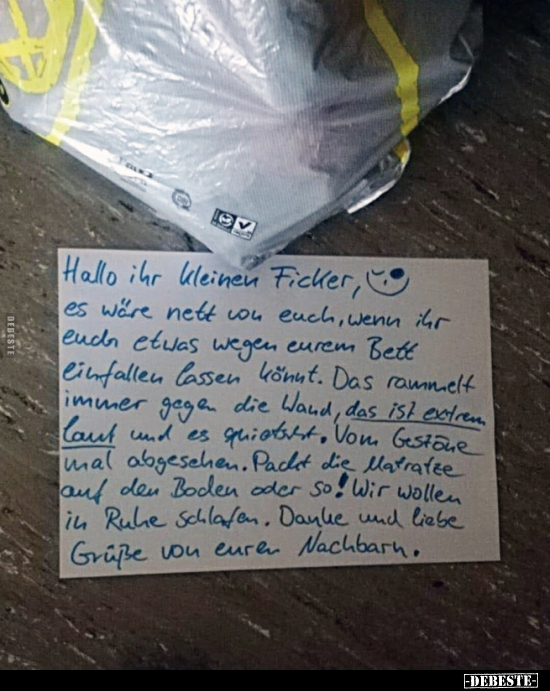 Hallo ihr kleinen Ficker,
es wäre nett von euch, wenn ihr
euch etwas wegen eurem Bett
einfallen lassen könnt. Das rammelt
immer gegen die Wand, das ist extrem
laut und es quietscht. Vom Gestöne
mal abgesehen. Packt die Matratze
auf den Boden oder so! Wir wollen
in Ruhe schlafen. Danke und liebe
Grüße von euren Nachbarn.
DEBESTE
-DEBESTE-